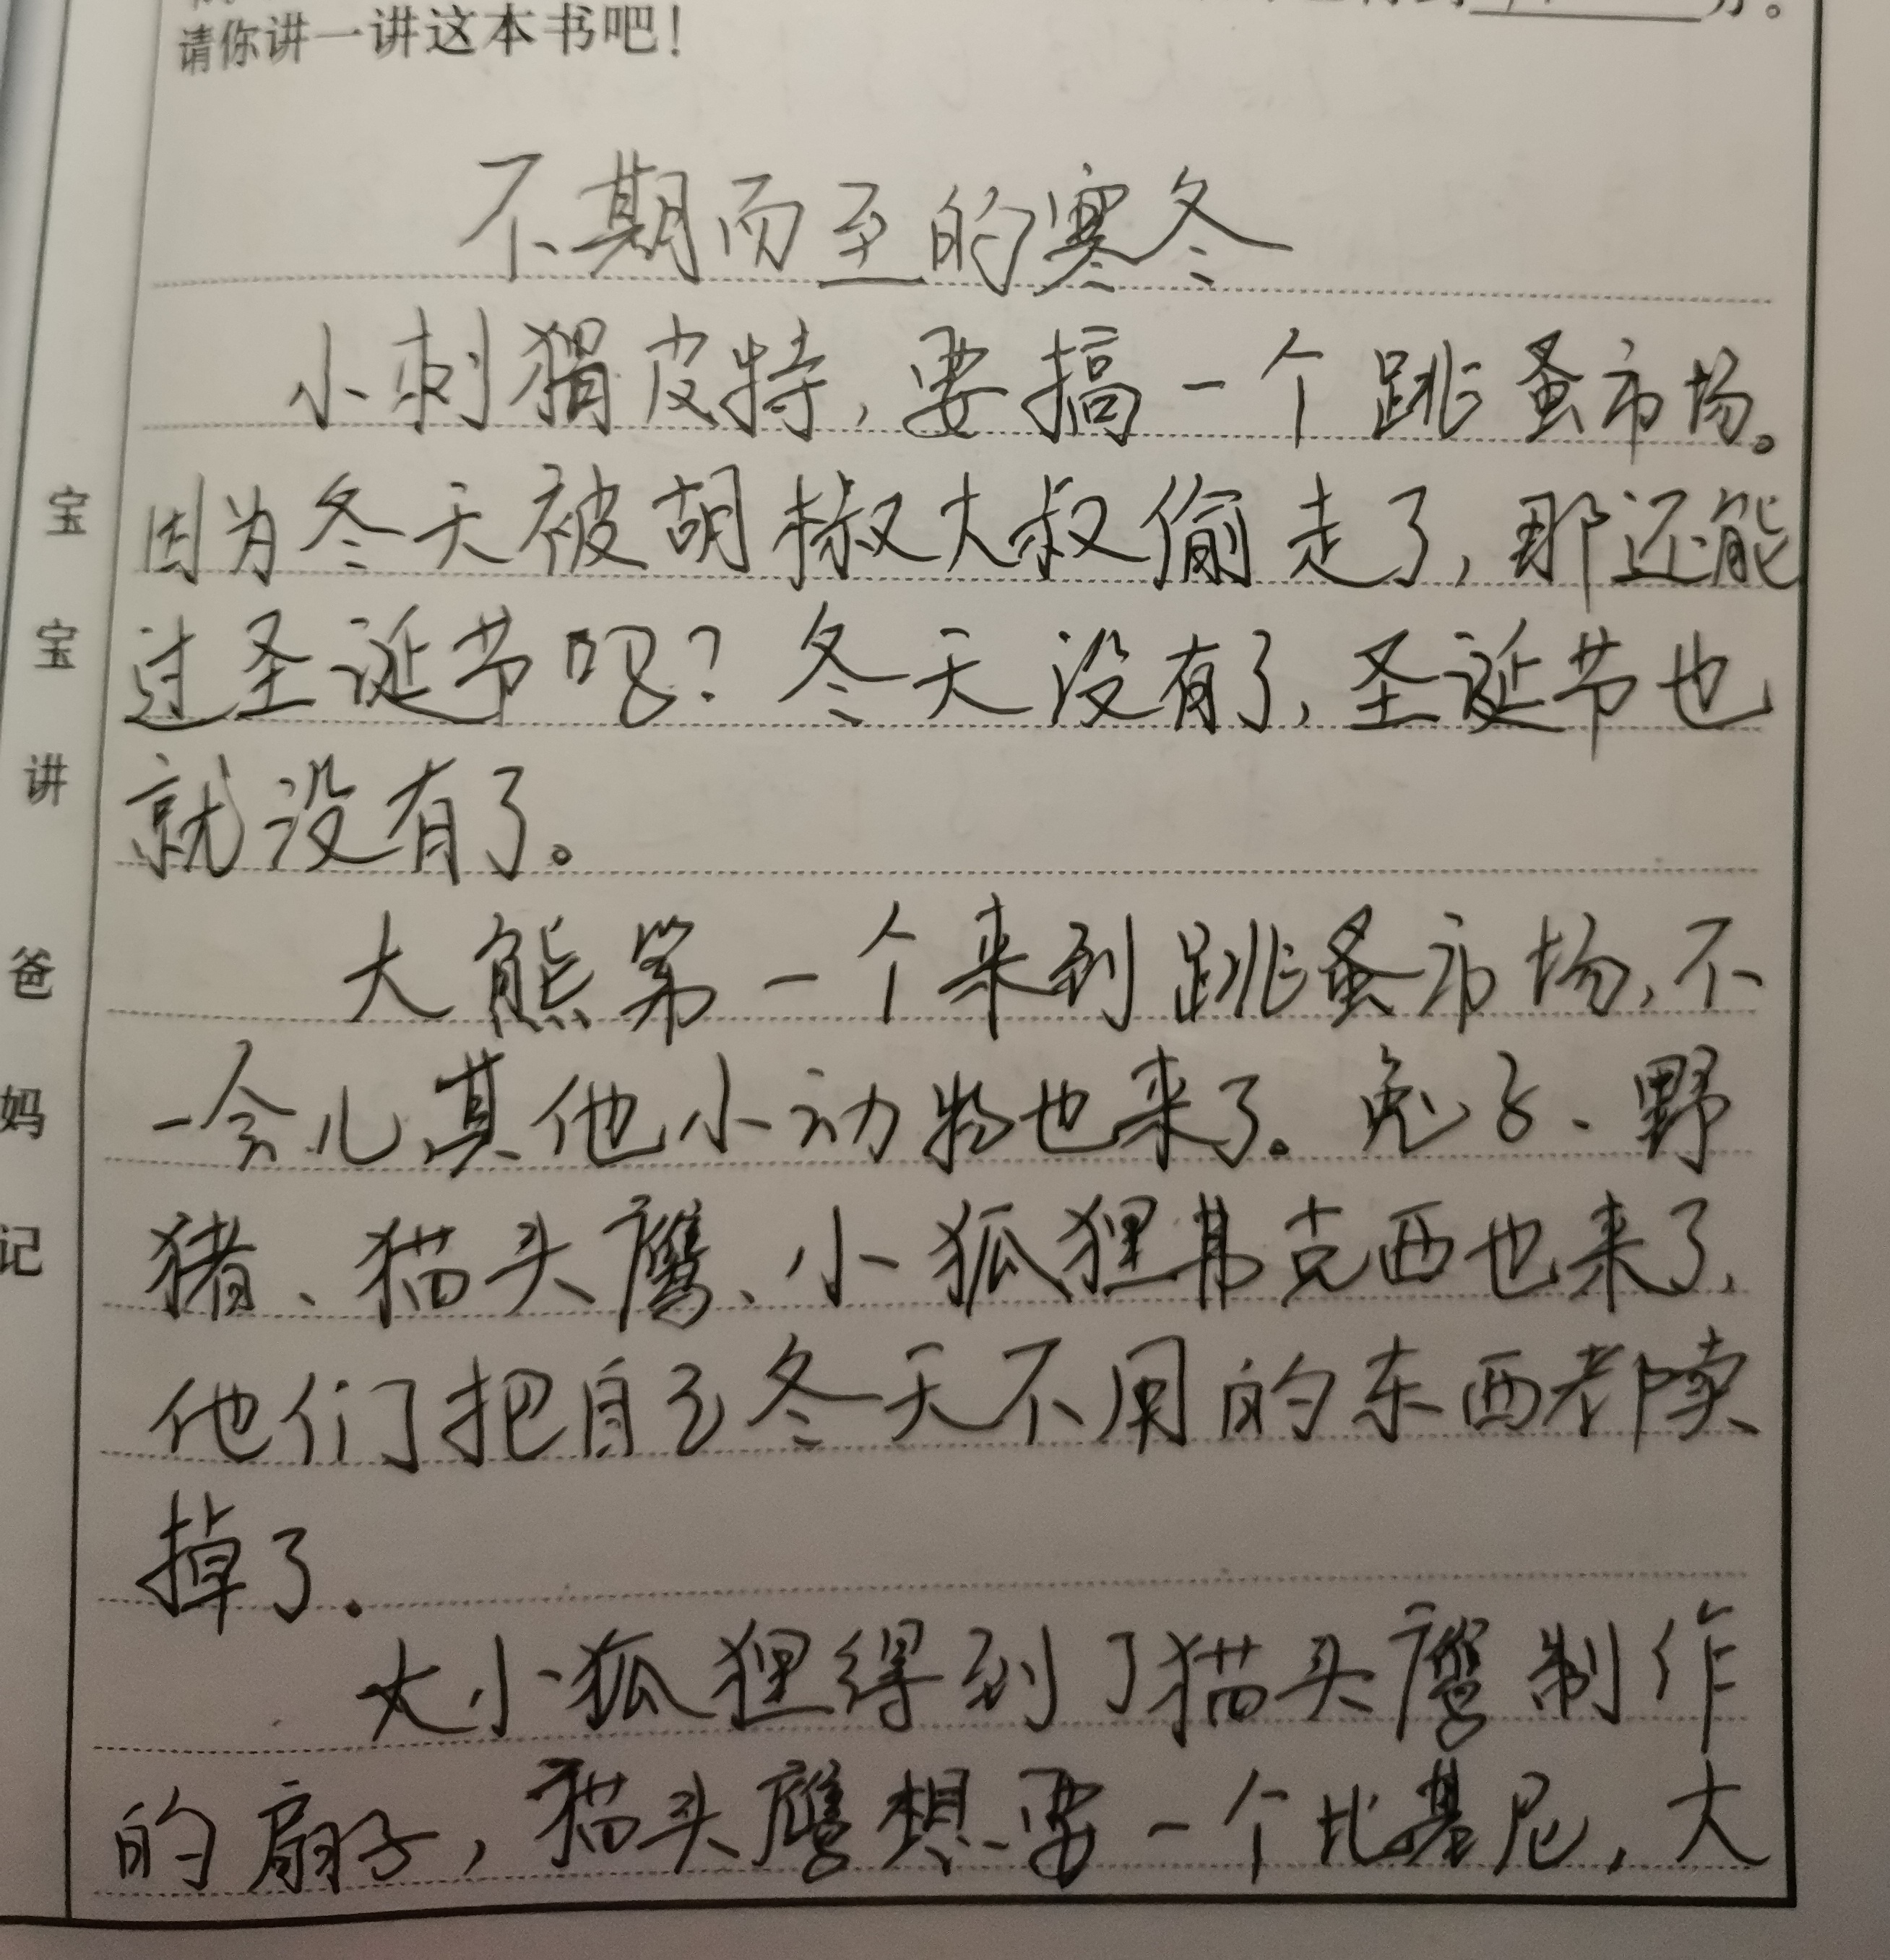 请你讲一讲这本书吧！
不期而至的寒冬
小刺猬皮特，要搞一个跳蚤市场。
因为冬天被胡椒大叔偷走了，那还能
过圣诞节吗？冬天没有了，圣诞节也
就没有了。
大熊第一个来到跳蚤市场，不
一会儿其他小动物也来了。兔子、野
猪、猫头鹰、小狐狸韦克西也来了，
他们把自己冬天不用的东西都卖
掉了．
大小狐狸得到了猫头鹰制作
的扇子，猫头鹰想要一个比基尼，大
宝宝讲
爸妈记